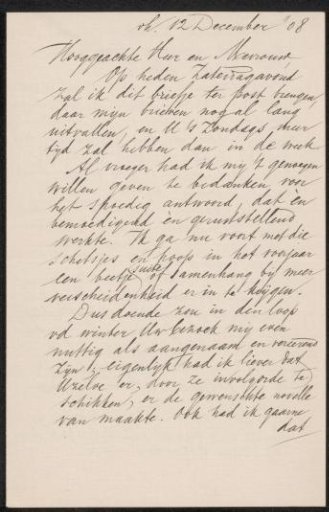 oh. 12 December '08
Hooggeachte Heer en Mevrouw,
Op heden Zaterdagavond
zal ik dit briefje ter post brengen,
daar mijn brieven nogal lang
uitvallen, en U 's Zondags, meer
tijd zal hebben dan in de week
Al vroeger had ik my 't genoegen
willen geven te bedanken, voor
het spoedig antwoord, dat èn
bemoedigend èn geruststellend
werkte. Ik ga nu voort met die
schetsjes en hoop in het voorjaar
een beetje suite of samenhang by meer
verscheidenheid er in te krijgen.
Dus doende zou in den loop
vd winter Uw bezoek my even
nuttig als aangenaam en vereerend
zyn! eigenlijk had ik liever dat
Uzelve er, door ze involgorde te
schikken, er de gewenschte novelle
van maakte. Ook had ik gaarne
dat